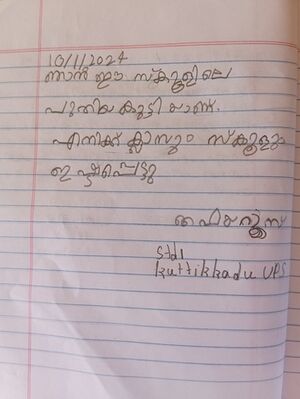 10/1/2024
ഞാൻ ഈ സ്കൂളിലെ
പുതിയ കുട്ടി യാണ്.
എനിക്ക് ക്ലാസും സ്കൂളും
ഇഷ്ടപ്പെട്ടു
std 1
kuttikkadu UPS